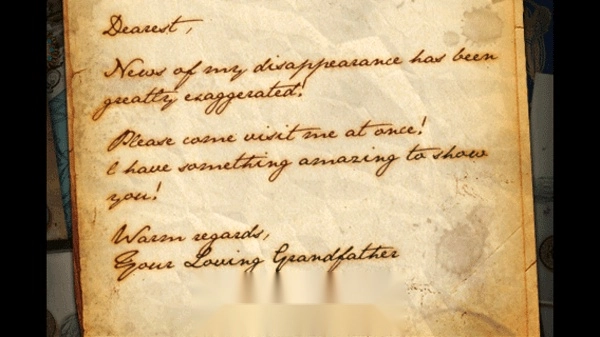 Dearest,
News of my disappearance has been
greatly exaggerated!
Please come visit me at once!
I have something amazing to show
you!
Warm regards,
Your Loving Grandfather